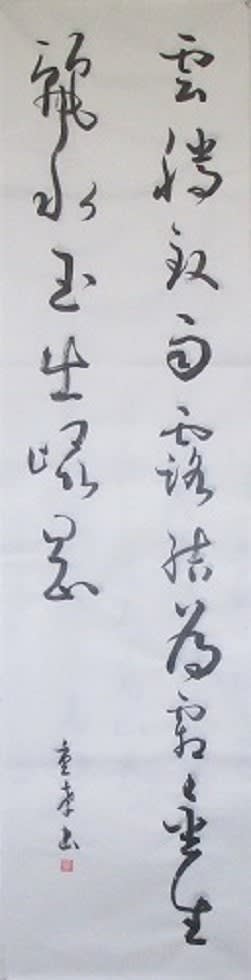 雲騰致雨露結為霜金生
麗水玉出崐岡
重孝書